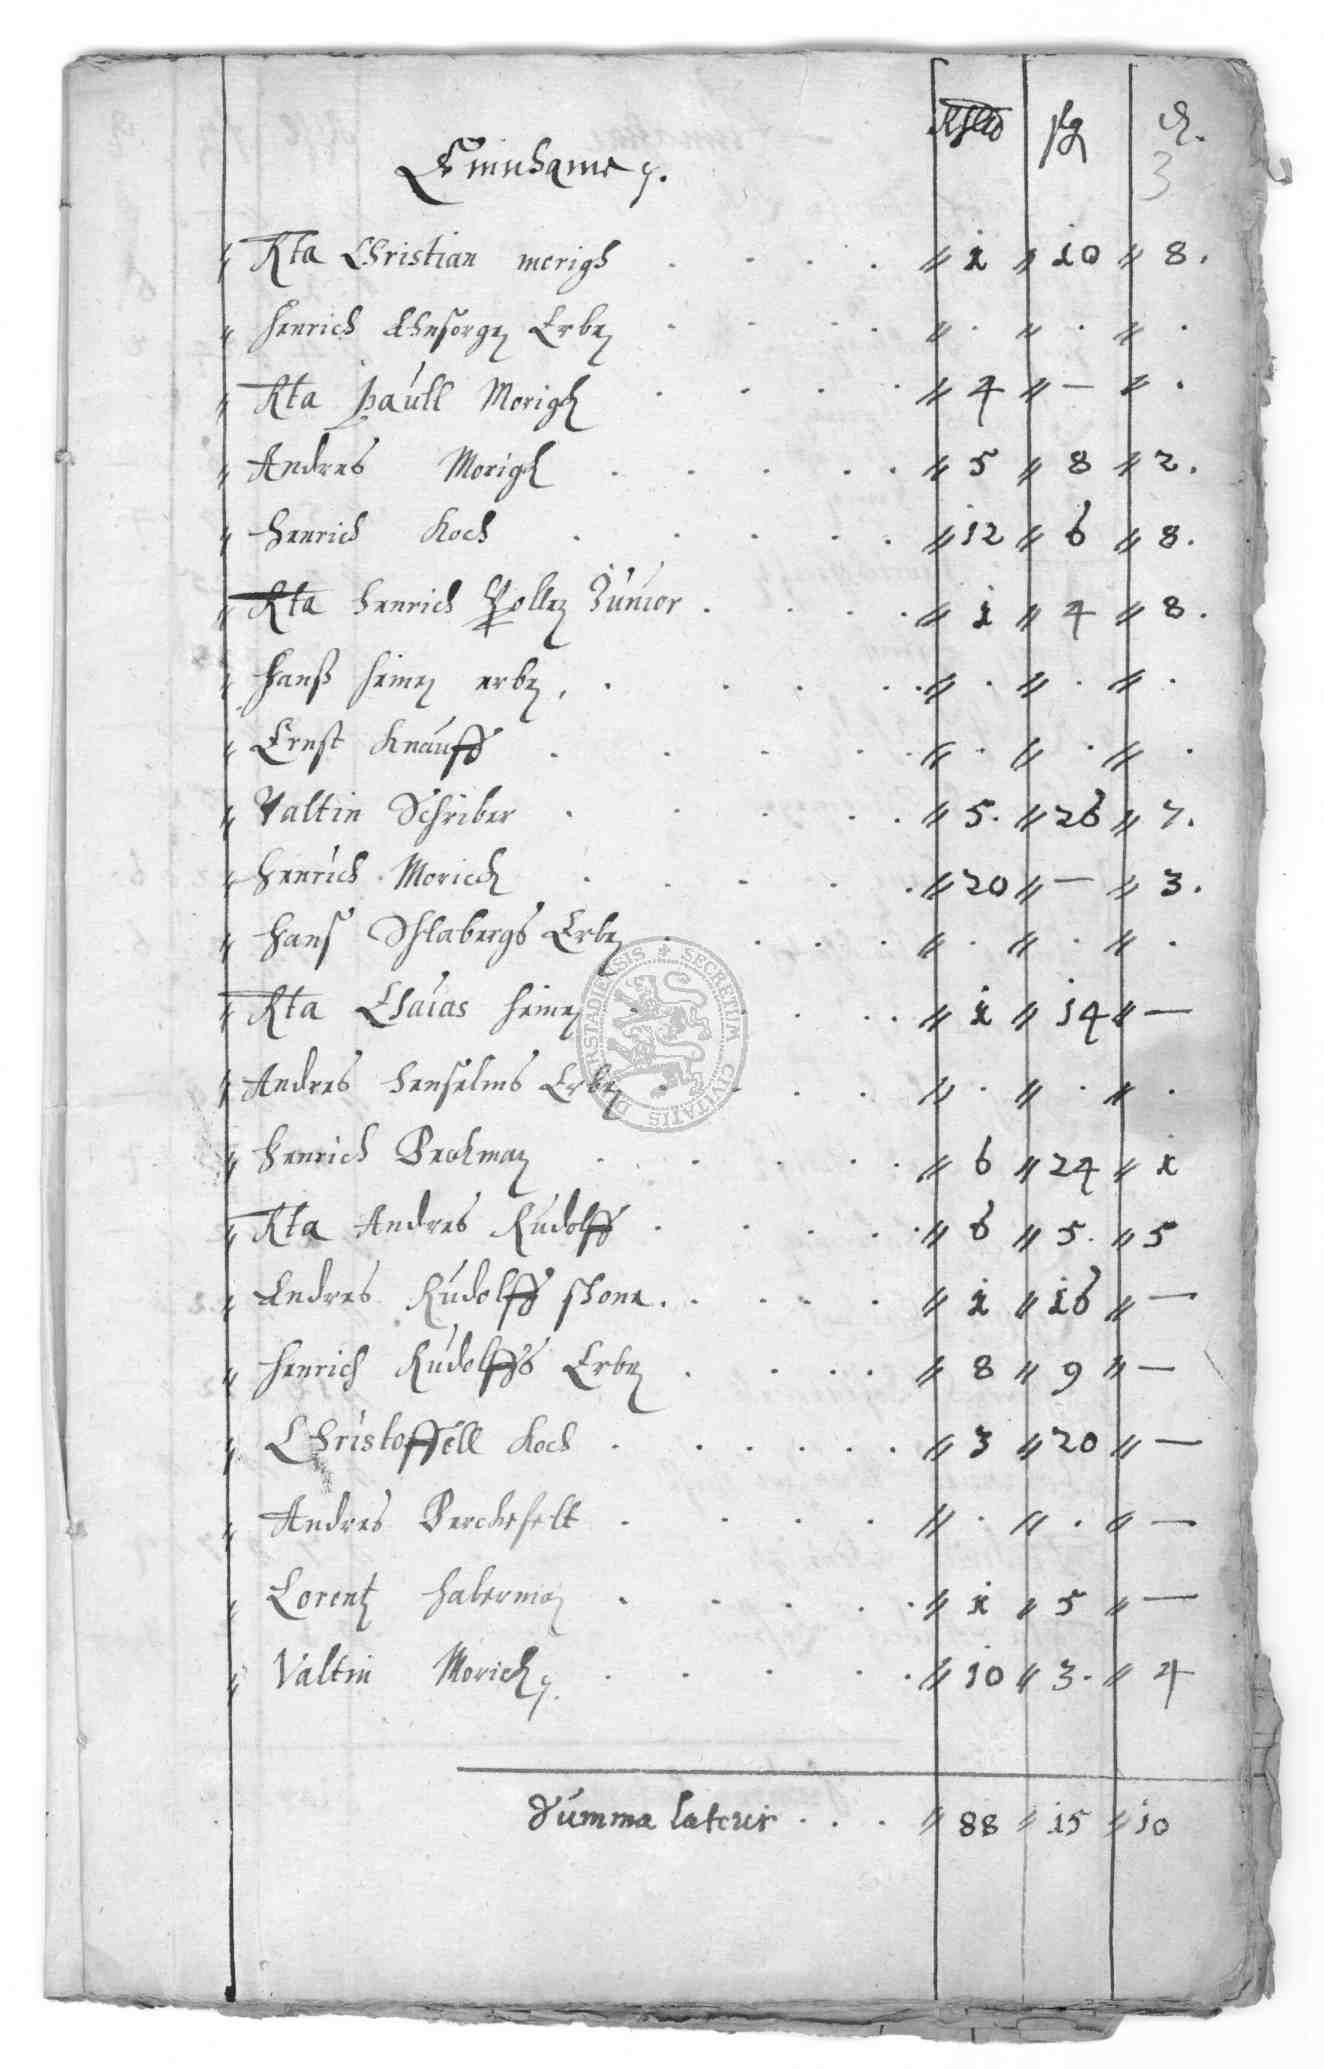 Einnhame
Rthlr ßg ₰.
3
Rta Christian merigh . . . . 1 10 8.
Henrich Ehnsorgen Erben . . . . . . .
Rta Paull Morigh . . . . 4 — .
Andres Morigh . . . . . 5 8 2.
Henrich Koch . . . . . 12 6 8.
Rta Henrich Pollen Junior . . . . 1 4 8.
Hanß Heinen erben, . . . . . . . .
Ernst Knauff . . . . . . . .
Valtin Schriber . . . . . 5. 26 7.
Henrich Morich . . . . . 20 — 3.
Hans Ohlabergs Erben . . . . . . .
Rta Esaias Heinen . . . . 1 14 —
Andres Henselms Erben . . . . . . .
Henrich Brohman . . . . . 6 24 1
Rta Andres Rudolff . . . . 6 5. 5
Andres Rudolff shone . . . . . 1 16 —
Henrich Rudolffs Erben . . . . 8 9 —
Christoffell Koch . . . . . . 3 20 —
Andres Berckefelt . . . . . . —
Lorentz Haberman . . . . . 1 5 —
Valtin Morich . . . . . 10 3. 4
SECRETUM CIVITATIS DUDERSTADIENSIS
Summa lateris . . . 88 15 10